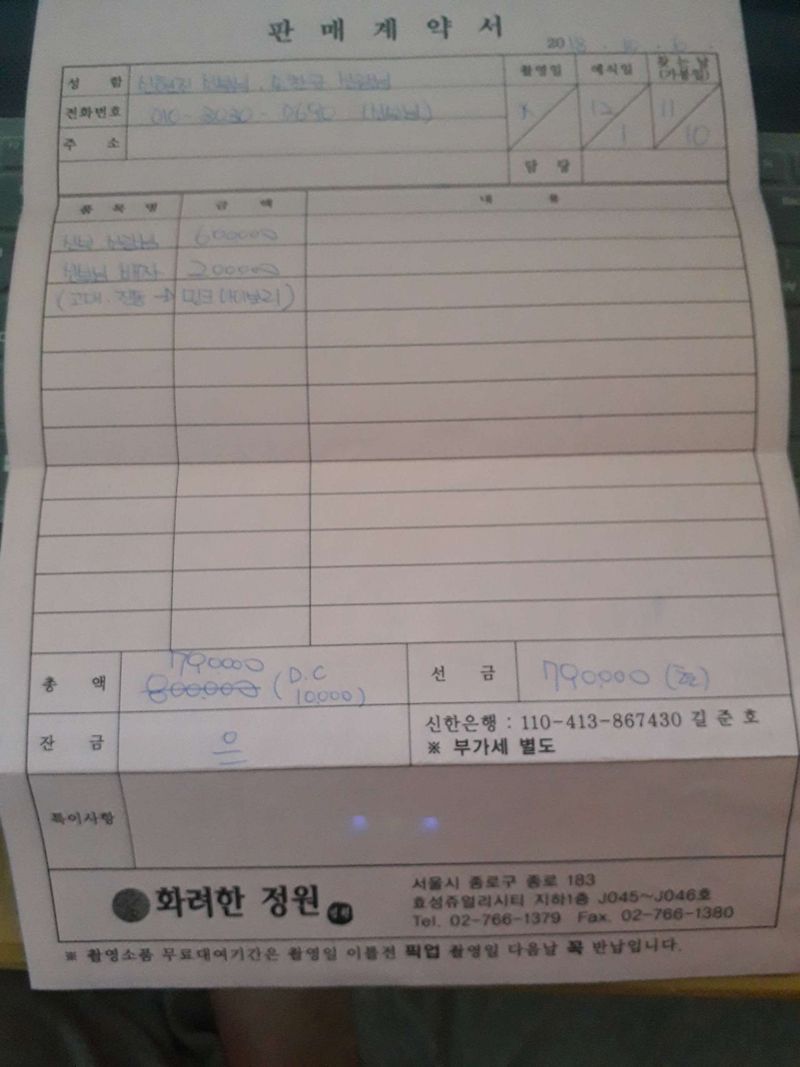 판 매 계 약 서
2018. 10. 6.
성 함 신부님, 신랑님
촬영일 예식일 찾는날 (가봉일)
전화번호 (신부님)
X 12/1 11/10
주 소
담 당
품 목 명 금 액 내 용
신랑님 600000
신부님 배자 200000
총 액 790000
800.000 (D.C 10,000)
선 금 790.000
잔 금 0
신한은행 : 110-413-867430 길 준 호
※ 부가세 별도
특이사항
화려한 정원
서울시 종로구 종로 183
효성쥬얼리시티 지하1층 J045~J046호
Tel. 02-766-1379 Fax. 02-766-1380
※ 촬영소품 무료대여기간은 촬영일 이틀전 픽업 촬영일 다음날 꼭 반납입니다.